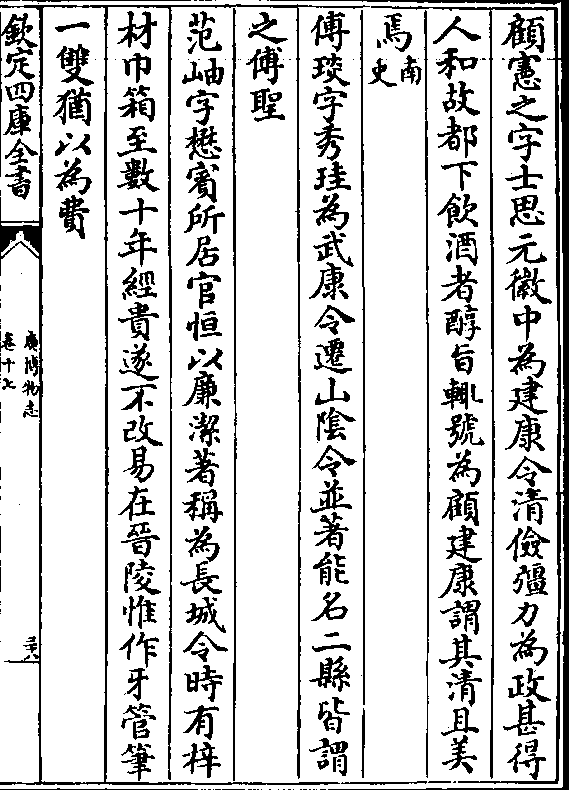 顧憲之字士思元徽中為建康令清儉彊力為政甚得
人和故都下飲酒者醇旨輒號為顧建康謂其清且美
焉南史
傅琰字秀珪為武康令遷山陰令並著能名二縣皆謂
之傅聖
范岫字懋賓所居官恒以廉潔著稱為長城令時有梓
材巾箱至數十年經貴遂不改易在晉陵惟作牙管筆
一雙猶以為費
欽定四庫全書
廣博物志
卷十七
三十八